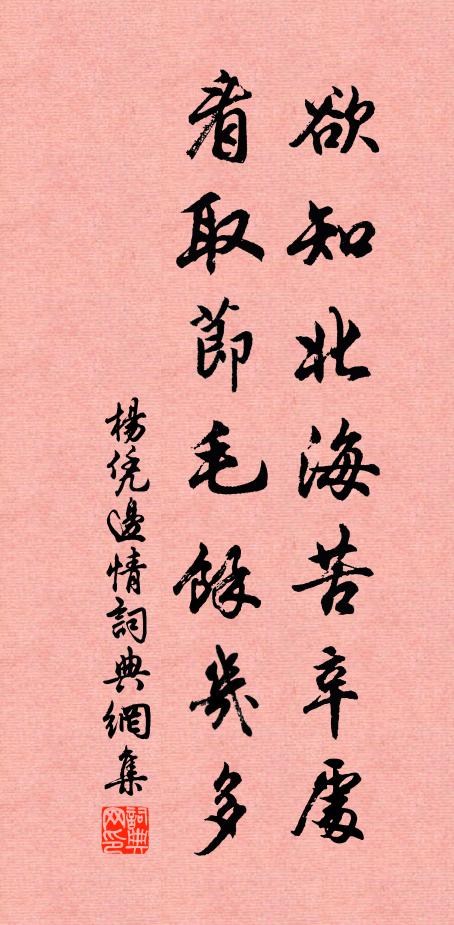 欲知北海苦辛處
看取節毛餘幾多
楊凭邊情詞典網集
詞典网印